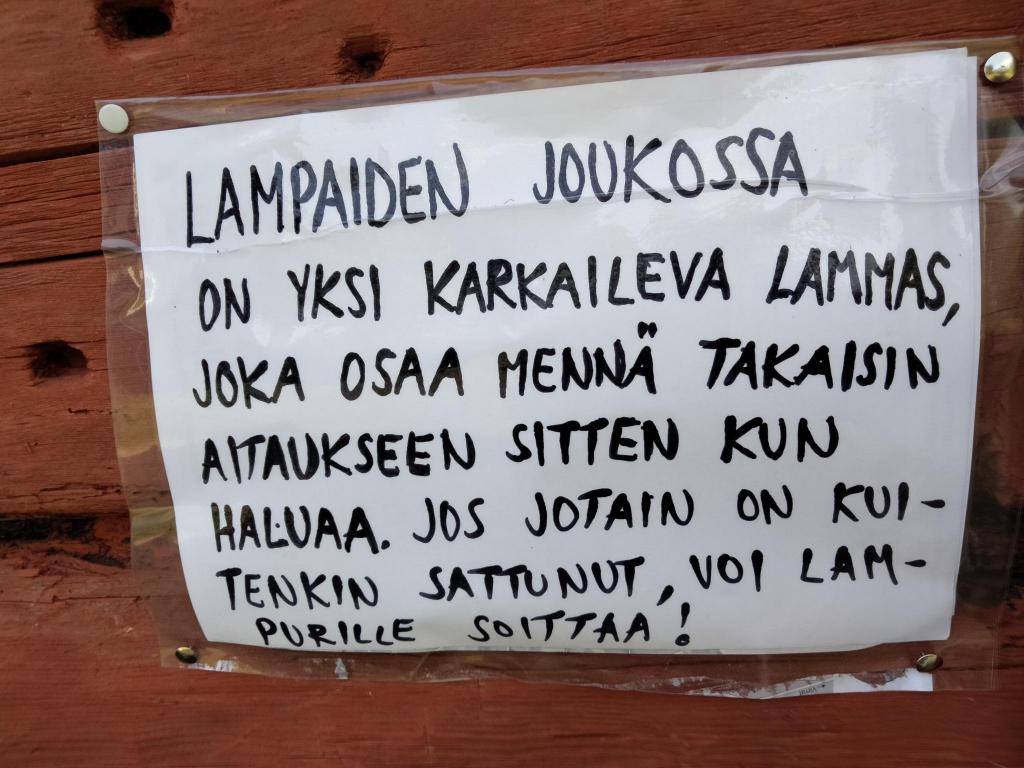 LAMPAIDEN JOUKOSSA
ON YKSI KARKAILEVA LAMMAS,
JOKA OSAA MENNÄ TAKAISIN
AITAUKSEEN SITTEN KUN
HALUAA. JOS JOTAIN ON KUI-
TENKIN SATTUNUT, VOI LAM-
PURILLE SOITTAA!